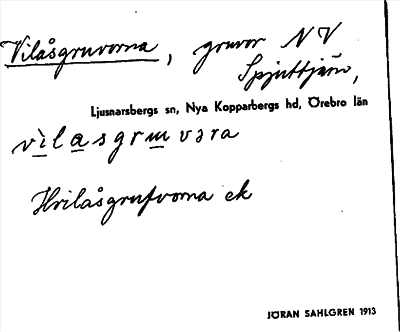 Vilåsgruvorna, gruvor NV
Spjuttjärn,
Ljusnarsbergs sn, Nya Kopparbergs hd, Örebro län
vìlasgruvəra
Hvilåsgrufvorna ek
JÖRAN SAHLGREN 1913